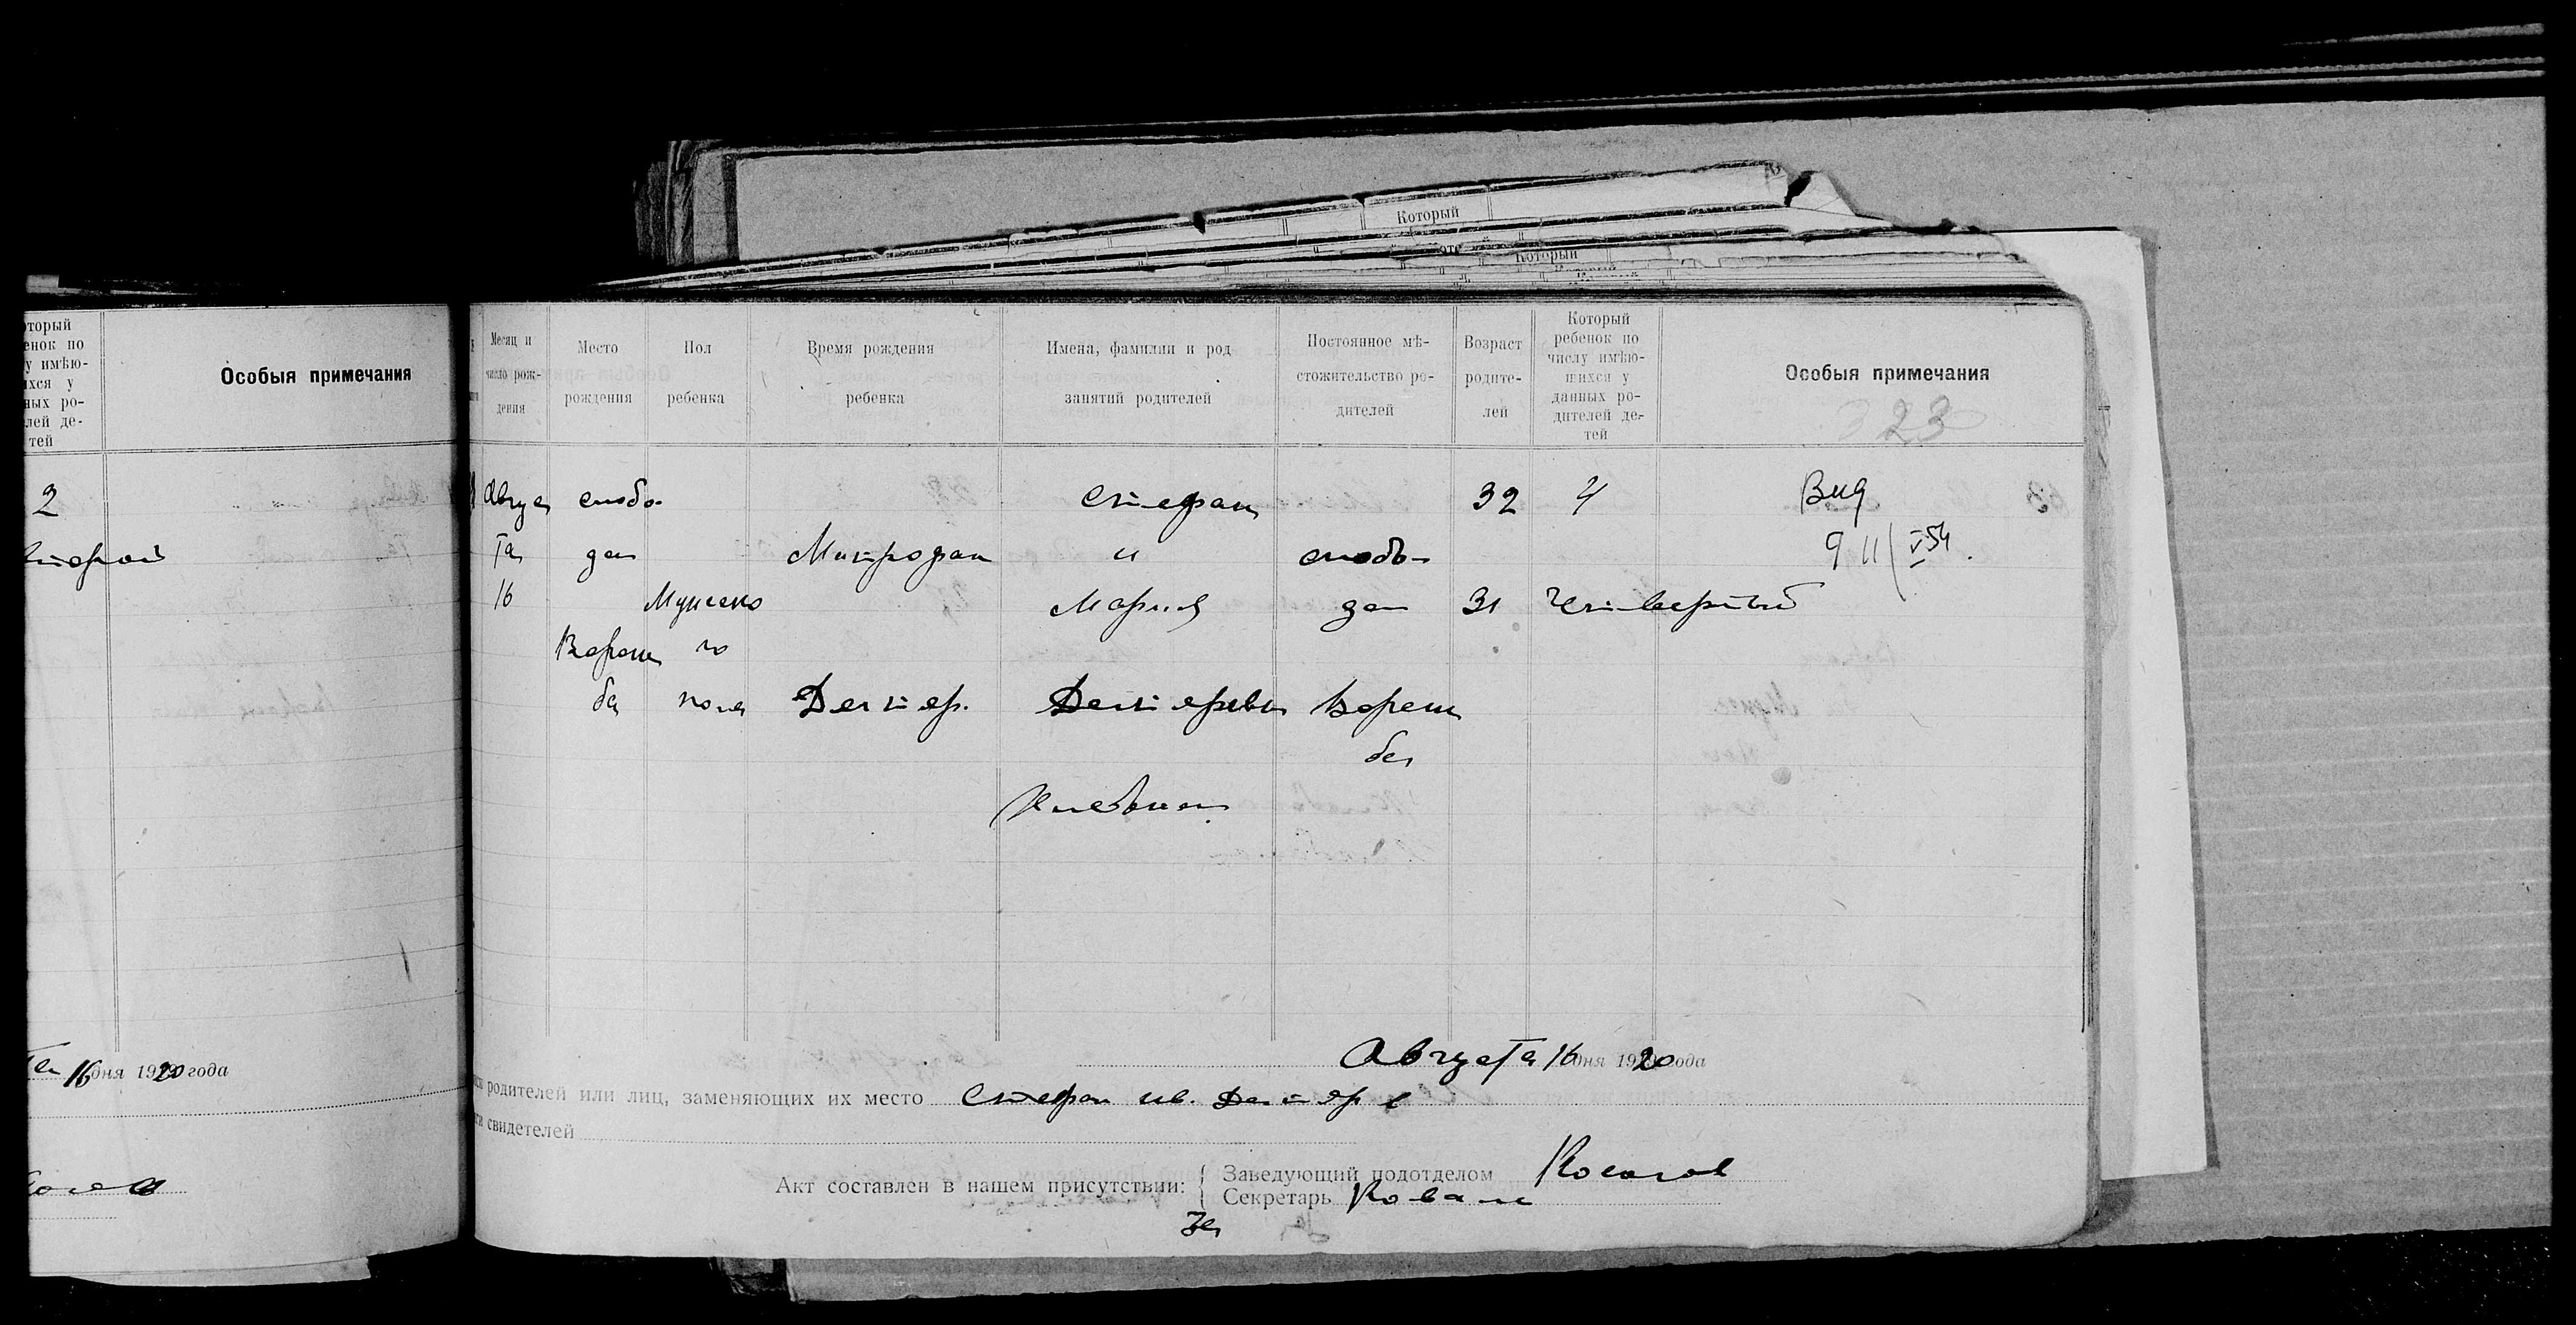 Который
Который
оторый
енок по
у имѣю-
ихся у
ных ро-
лей де-
тей
Особыя примечания
2
второй
та 16 дня 1920 года
Месяц и
число рож-
дения
Место
рождения
Пол
ребенка
Время рождения
ребенка
Имена, фамилии и род
занятий родителей
Постоянное мѣ-
стожительство ро-
дителей
Возраст
родите-
лей
Который
ребенок по
числу имѣю-
шихся у
данных ро-
дителей де-
тей
Особыя примечания
23
Авгус
та
16
слобо
да
Ворон
ба
Мужско
го
пола
Митрофан
Дегтер.
Стефан
и
Мария
Дегтеревы
Хлебопаш.
слобо
да
Ворон
ба
32
31
4
Четвертый
Вид
9 11/V 54.
Августа 16 дня 1920 года
родителей или лиц, заменяющих их место Стефан ив. Дегтяр
свидетелей
Акт составлен в нашем присутствии:
Заведующий подотделом
Секретарь
За